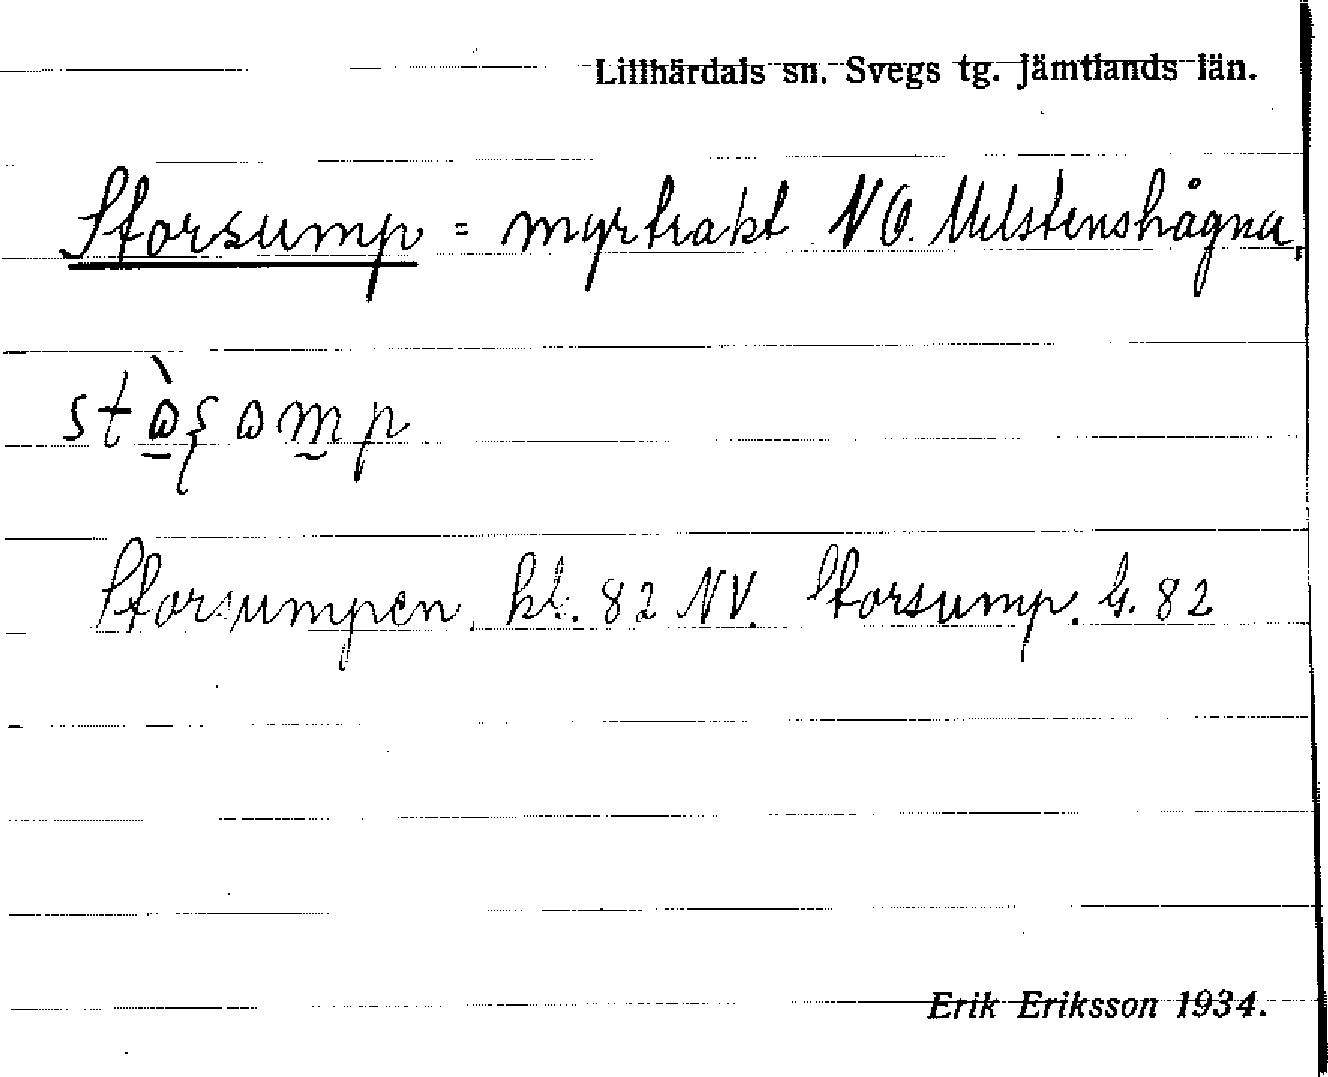 Lillhärdals sn. Svegs tg. Jämtlands län.
Storsump = myrtrakt NO. Ulvstenshågna.
Storsumpen kb. 82 NV. Storsump. G. 82
Erik Eriksson 1934.